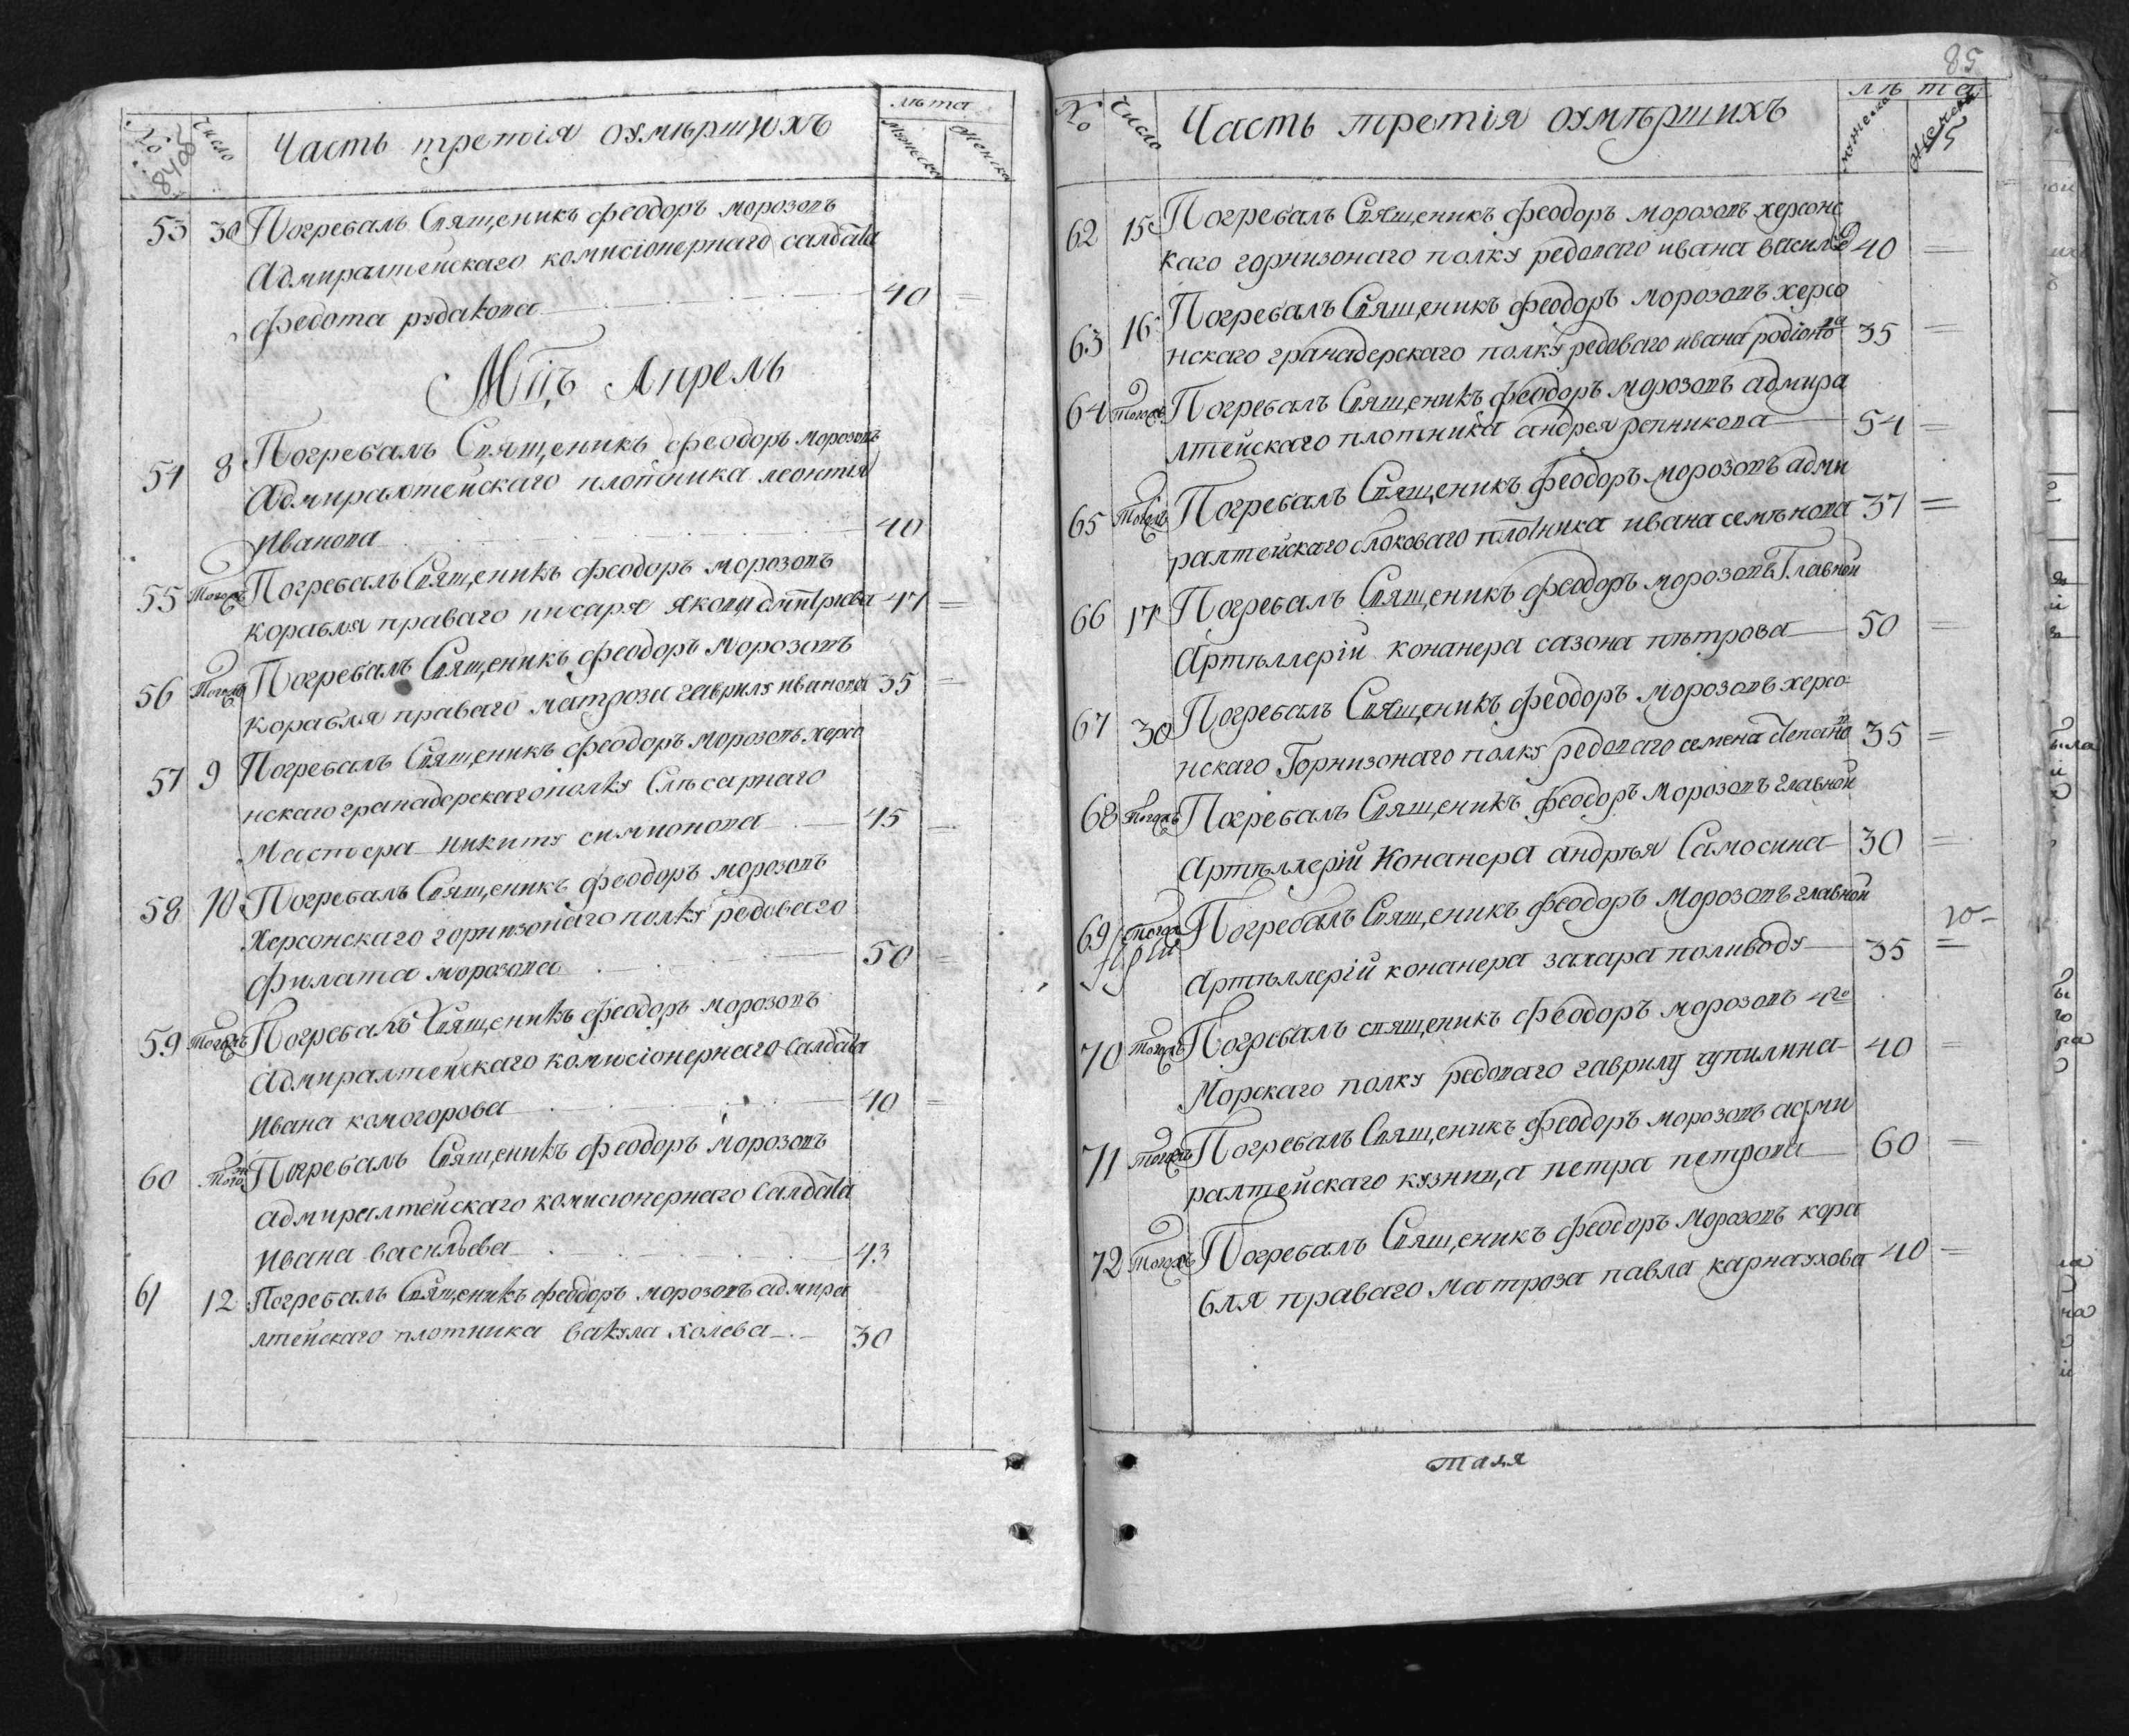 No
Число
Часть третия оумершихъ
лѣта
мужеска
женска
53 30 Погребалъ Священикъ феодоръ морозовъ
Адмиралтейскаго комисіонернаго салдата
федота рудакова 40 =
Мцъ Апрель
54 8 Погребалъ Священикъ феодоръ морозовъ
Адмиралтейскаго плотника леонтия
Иванова 40
55 Тогожъ Погребалъ Священикъ феодоръ морозовъ
корабля праваго писаря якова дмитриева 47 =
56 Тогожъ Погребалъ Священикъ феодоръ морозовъ
корабля праваго матрози гаврилу иванова 35 =
57 9 Погребалъ Священикъ феодоръ морозовъ херсо
нскаго гранадерскаго полку Слѣсарнаго
Мастера никиту симионова 45 =
58 10 Погребалъ Священикъ феодоръ морозовъ
Херсонскаго горнизонаго полку редоваго
филата морозова 50 =
59 Тогожъ Погребалъ Священикъ феодоръ морозовъ
Адмиралтейскаго комисіонернаго Салдата
Ивана комогорова 40 =
60 Тогожъ Погребалъ Священикъ феодоръ морозовъ
адмиралтейскаго комисионернаго Салдата
Ивана васильева 43
61 12 Погребалъ Священикъ феодоръ морозовъ адмира
лтейскаго плотника вакула холева 30
85
No
Число
Часть третія оумѣршихъ
лѣта
мужеска
женска
62 15 Погребалъ Священикъ феодоръ морозовъ херсонс
каго горнизонаго полку редоваго ивана василе 40 =
63 16 Погребалъ Священикъ феодоръ морозовъ херсо
нскаго гранадерскаго полку редоваго ивана родіонова 35 =
64 Тогожъ Погребалъ Священикъ феодоръ морозовъ адмира
лтейскаго плотника андрея репникова 54 =
65 Тогожъ Погребалъ Священикъ феодоръ морозовъ адми
ралтейскаго блоковаго плотника ивана семѣнова 37 =
66 17 Погребалъ Священикъ феодоръ морозовъ Главной
Артѣллерій конанера сазона пѣтрова 50 =
67 30 Погребалъ Священикъ феодоръ морозовъ херсо
нскаго Горнизонаго полку редоваго семена степано 35 =
68 Тогожъ Погребалъ Священикъ феодоръ морозовъ главной
Артѣллерій Конанера андрѣя Самосина 30 =
69 Тогожъ Погребалъ Священикъ феодоръ морозовъ главной
Артѣллерій конанера захара поливоду 35 =
70 Тогожъ Погребалъ священикъ феодоръ морозовъ 4го
Морскаго полку редоваго гаврилу чупилина 40 =
71 Тогожъ Погребалъ Священикъ феодоръ морозовъ адми
ралтейскаго кузница петра петрова 60 =
72 Тогожъ Погребалъ Священикъ феодоръ морозовъ кора
бля праваго матроза павла карнаухова 40 =